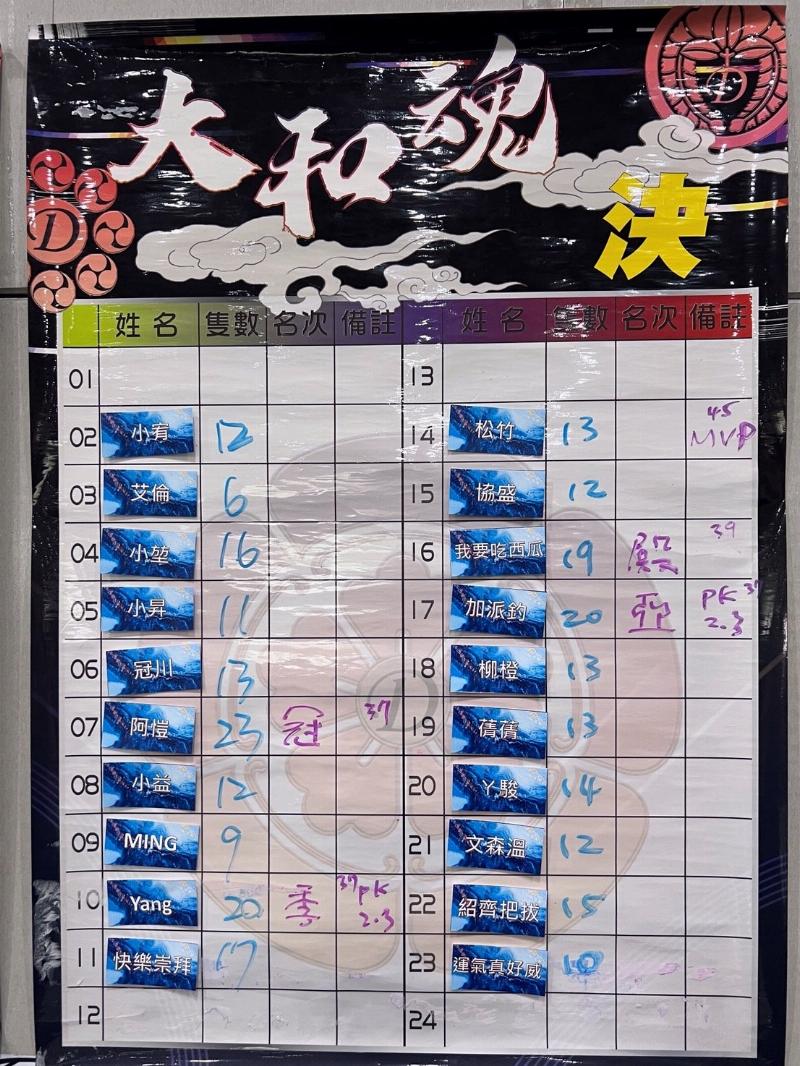 大和魂
決
姓名 隻數 名次 備註 姓名 隻數 名次 備註
01 13
02 小宥 12 14 松竹 13 45 MVP
03 艾倫 6 15 協盛 12
04 小堃 16 16 我要吃西瓜 19 殿 39
05 小昇 11 17 加派釣 20 亞 PK 37 2.3
06 冠川 13 18 柳橙 13
07 阿愷 23 冠 37 19 蒨蒨 13
08 小益 12 20 丫駿 14
09 MING 9 21 文森溫 12
10 Yang 20 季 37 PK 2.3 22 紹齊把拔 15
11 快樂崇拜 17 23 運氣真好威 10
12 24